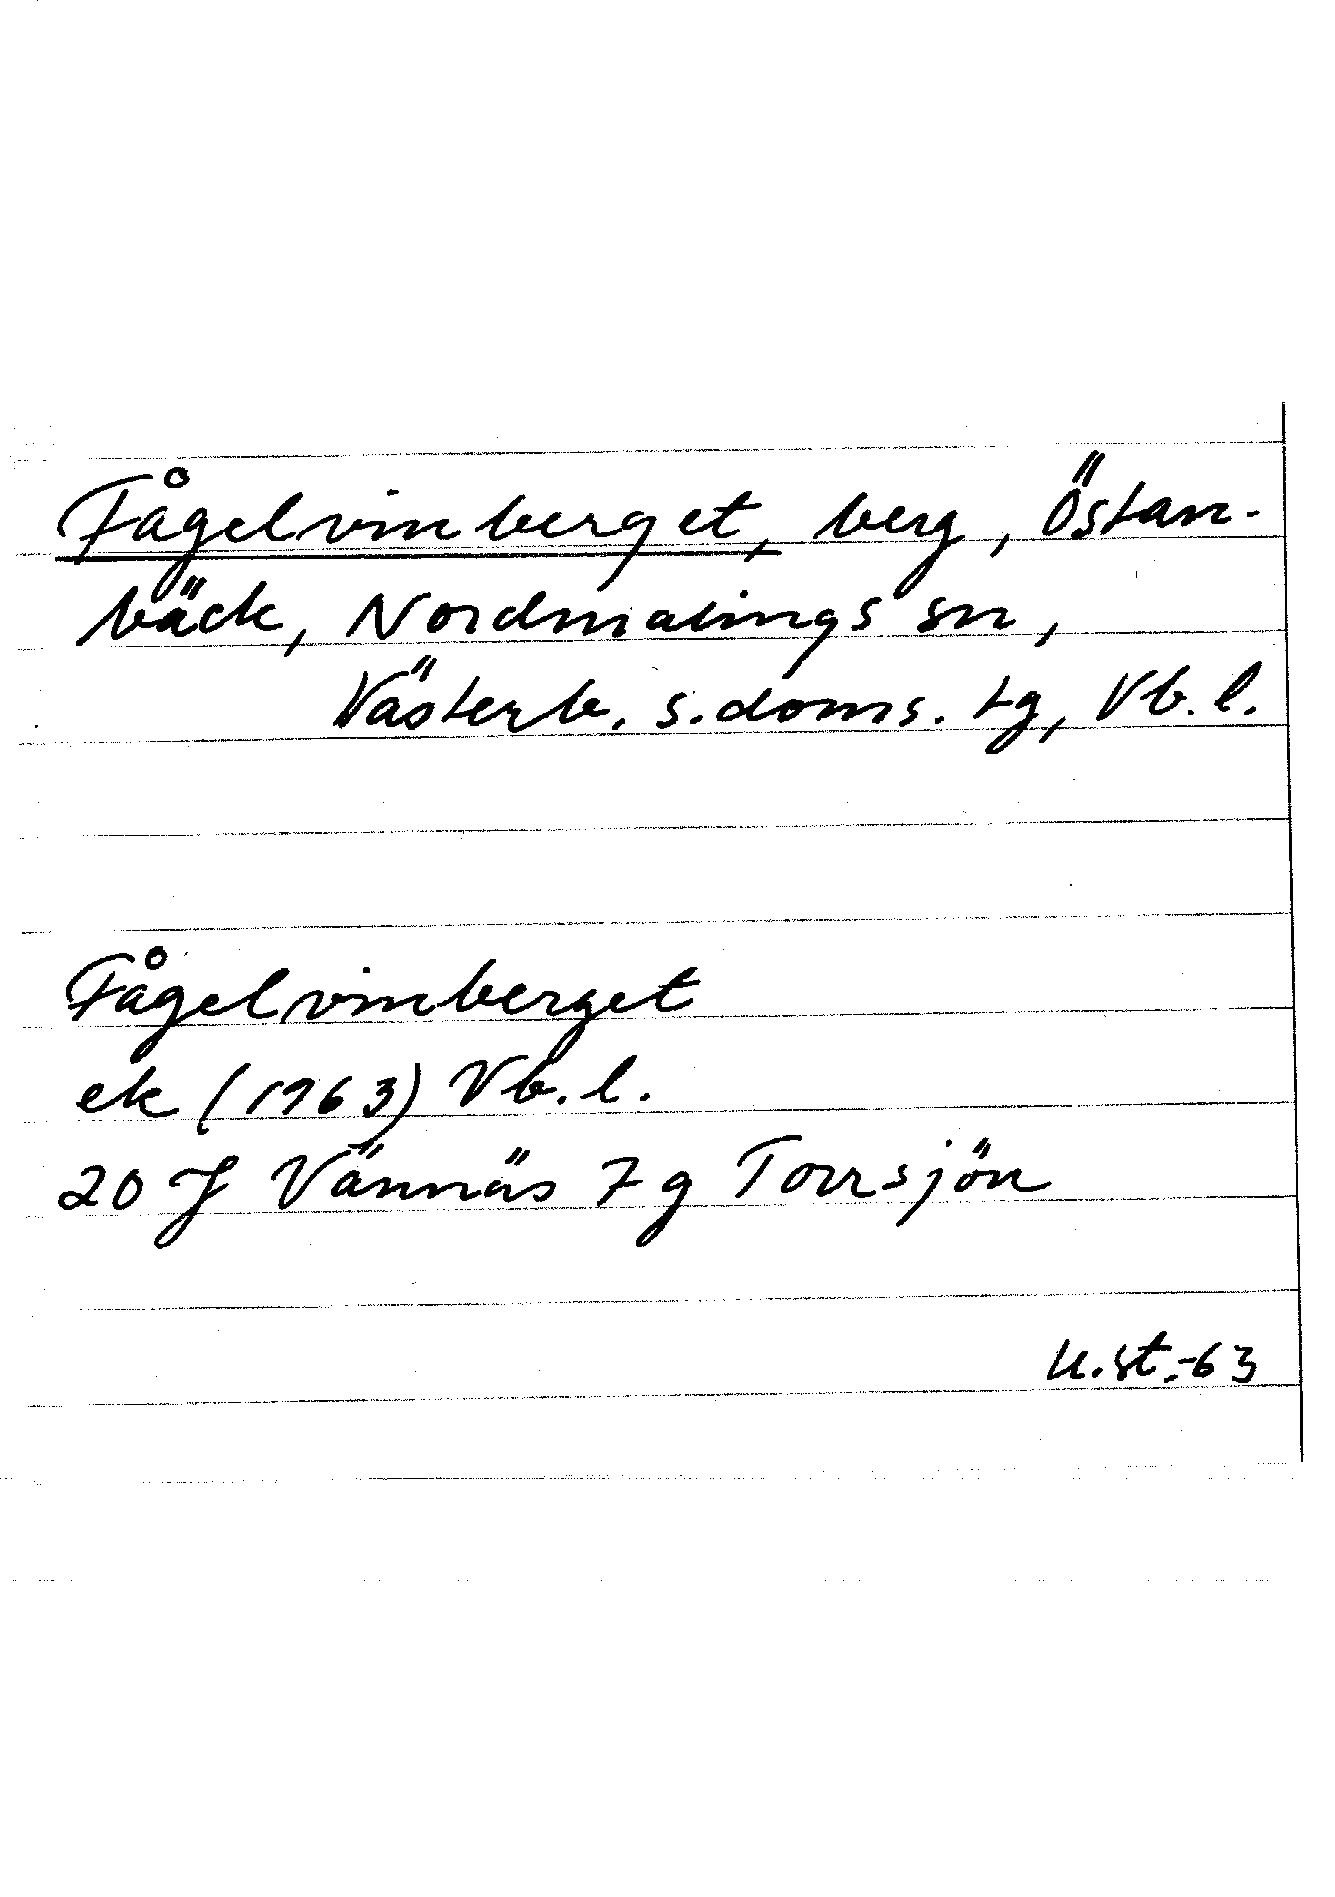 Fågelvinberget, berg, Östan-
bäck, Nordmalings sn,
Västerb. s. doms. tg, Vb. l.
Fågelvinberget
ek (1963) Vb. l.
20 J Vännäs 7 g Torrsjön
U.st.-63